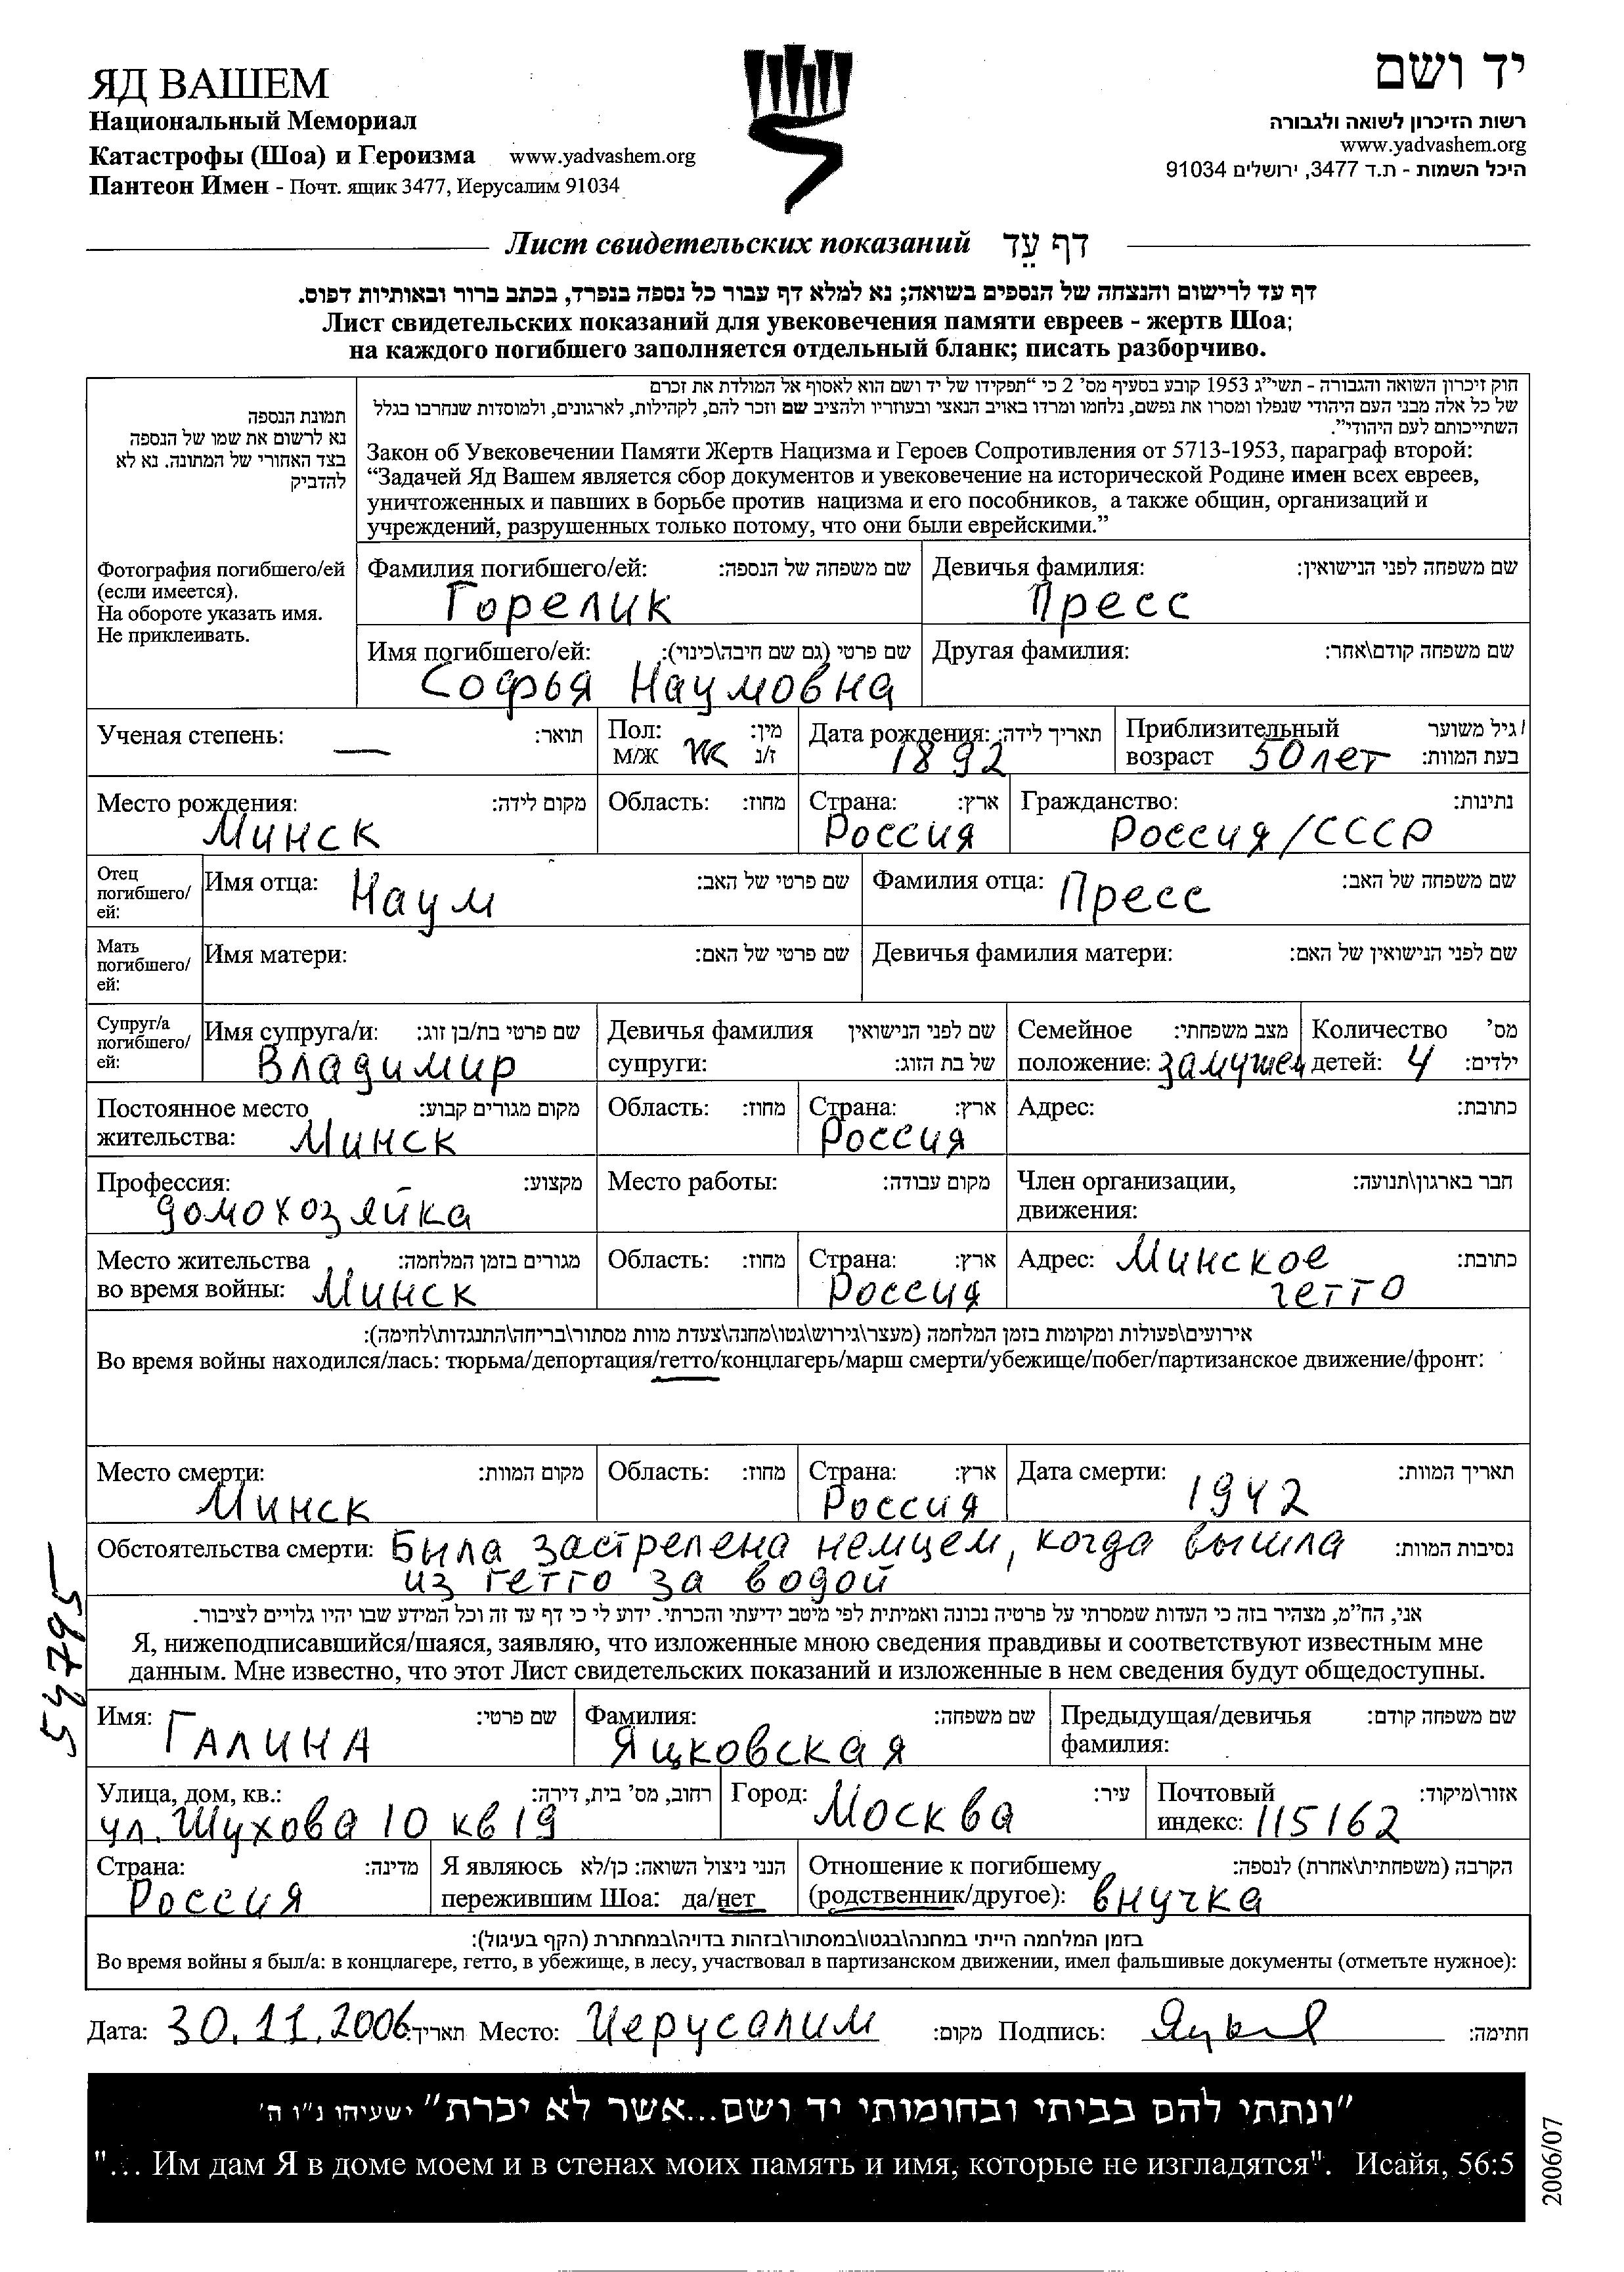 ЯД ВАШЕМ
Национальный Мемориал
Катастрофы (Шоа) и Героизма www.yadvashem.org
Пантеон Имен - Почт. ящик 3477, Иерусалим 91034
יד ושם
רשות הזיכרון לשואה ולגבורה
www.yadvashem.org
היכל השמות - ת.ד 3477, ירושלים 91034
Лист свидетельских показаний דף עֵד
דף עד לרישום והנצחה של הנספים בשואה; נא למלא דף עבור כל נספה בנפרד, בכתב ברור ובאותיות דפוס.
Лист свидетельских показаний для увековечения памяти евреев - жертв Шоа;
на каждого погибшего заполняется отдельный бланк; писать разборчиво.
תמונת הנספה
נא לרשום את שמו של הנספה
בצד האחורי של המתונה. נא לא
להדביק
Фотография погибшего/ей
(если имеется).
На обороте указать имя.
Не приклеивать.
חוק זיכרון השואה והגבורה - תשי״ג 1953 קובע בסעיף מס' 2 כי “תפקידו של יד ושם הוא לאסוף אל המולדת את זכרם
של כל אלה מבני העם היהודי שנפלו ומסרו את נפשם, נלחמו ומרדו באויב הנאצי ובעוזריו ולהציב שם וזכר להם, לקהילות, לארגונים, ולמוסדות שנחרבו בגלל
השתייכותם לעם היהודי”.
Закон об Увековечении Памяти Жертв Нацизма и Героев Сопротивления от 5713-1953, параграф второй:
“Задачей Яд Вашем является сбор документов и увековечение на исторической Родине имен всех евреев,
уничтоженных и павших в борьбе против нацизма и его пособников, а также общин, организаций и
учреждений, разрушенных только потому, что они были еврейскими.”
Фамилия погибшего/ей: שם משפחה של הנספה:
Горелик
Девичья фамилия: שם משפחה לפני הנישואין:
Пресс
Имя погибшего/ей: שם פרטי (גם שם חיבה\כינוי):
Софья Наумовна
Другая фамилия: שם משפחה קודם\אחר:
Ученая степень: — תואר:
Пол: מין:
м/ж Ж ז/נ
Дата рождения: תאריך לידה:
1892
Приблизительный גיל משוער/
возраст 50 лет בעת המוות:
Место рождения: מקום לידה:
Минск
Область: מחוז:
Страна: ארץ:
Россия
Гражданство: נתינות:
Россия/СССР
Отец
погибшего/
ей:
Имя отца: Наум שם פרטי של האב:
Фамилия отца: Пресс שם משפחה של האב:
Мать
погибшего/
ей:
Имя матери: שם פרטי של האם:
Девичья фамилия матери: שם לפני הנישואין של האם:
Супруг/а
погибшего/
ей:
Имя супруга/и: שם פרטי בת/בן זוג:
Владимир
Девичья фамилия שם לפני הנישואין
супруги: של בת הזוג:
Семейное מצב משפחתי:
положение: замужем
Количество מס'
детей: 4 ילדים:
Постоянное место מקום מגורים קבוע:
жительства: Минск
Область: מחוז:
Страна: ארץ:
Россия
Адрес: כתובת:
Профессия: מקצוע:
домохозяйка
Место работы: מקום עבודה:
Член организации, חבר בארגון\תנועה:
движения:
Место жительства מגורים בזמן המלחמה:
во время войны: Минск
Область: מחוז:
Страна: ארץ:
Россия
Адрес: Минское כתובת:
гетто
אירועים\פעולות ומקומות בזמן המלחמה (מעצר\גירוש\גטו\מחנה\צעדת מוות מסתור\בריחה\התנגדות\לחימה):
Во время войны находился/лась: тюрьма/депортация/гетто/концлагерь/марш смерти/убежище/побег/партизанское движение/фронт:
Место смерти: מקום המוות:
Минск
Область: מחוז:
Страна: ארץ:
Россия
Дата смерти: תאריך המוות:
1942
Обстоятельства смерти: Была застрелена немцем, когда вышла נסיבות המוות:
из гетто за водой
אני, הח״מ, מצהיר בזה כי העדות שמסרתי על פרטיה נכונה ואמיתית לפי מיטב ידיעתי והכרתי. ידוע לי כי דף עד זה וכל המידע שבו יהיו גלויים לציבור.
Я, нижеподписавшийся/шаяся, заявляю, что изложенные мною сведения правдивы и соответствуют известным мне
данным. Мне известно, что этот Лист свидетельских показаний и изложенные в нем сведения будут общедоступны.
54795
Имя: ГАЛИНА שם פרטי:
Фамилия: שם משפחה:
Яцковская
Предыдущая/девичья שם משפחה קודם:
фамилия:
Улица, дом, кв.: רחוב, מס' בית, דירה:
ул. Шухова 10 кв 19
Город: Москва עיר:
Почтовый אזור\מיקוד:
индекс: 115162
Страна: מדינה:
Россия
Я являюсь הנני ניצול השואה: כן/לא
пережившим Шоа: да/нет
Отношение к погибшему הקרבה (משפחתית\אחרת) לנספה:
(родственник/другое): внучка
בזמן המלחמה הייתי במחנה\בגטו\במסתור\בזהות בדויה\במחתרת (הקף בעיגול):
Во время войны я был/а: в концлагере, гетто, в убежище, в лесу, участвовал в партизанском движении, имел фальшивые документы (отметьте нужное):
Дата: 30.11.2006 תאריך: Место: Иерусалим מקום: Подпись: חתימה:
”ונתתי להם בביתי ובחומותי יד ושם...אשר לא יכרת” ישעיהו נ״ו ה'
"... Им дам Я в доме моем и в стенах моих память и имя, которые не изгладятся". Исайя, 56:5
2006/07